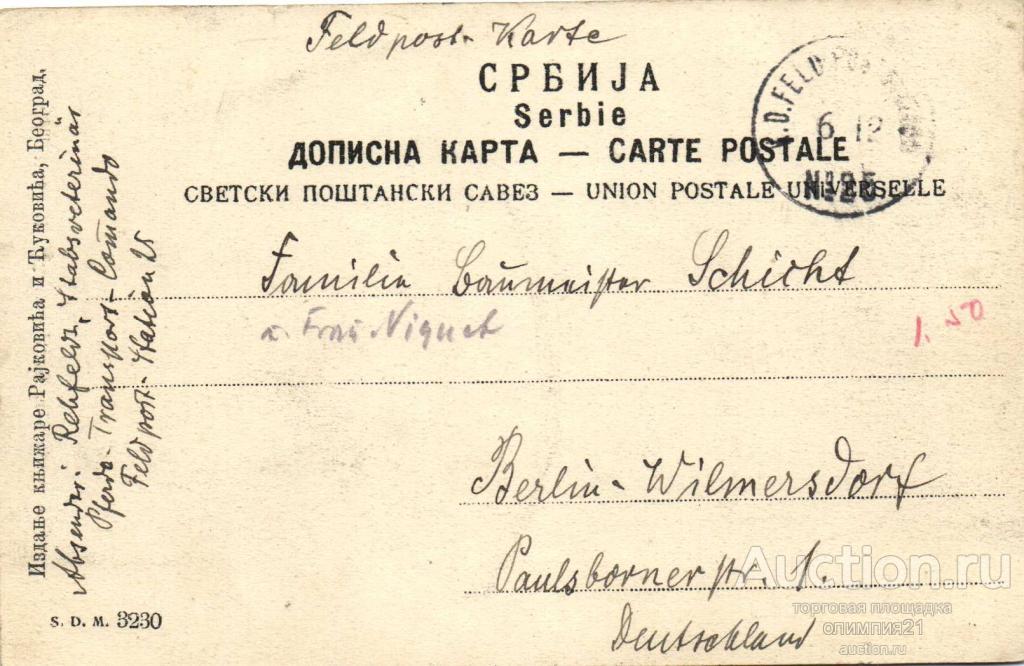 Feldpost-Karte
СРБИЈА
Serbie
ДОПИСНА КАРТА — CARTE POSTALE
СВЕТСКИ ПОШТАНСКИ САВЕЗ — UNION POSTALE UNIVERSELLE
K.D.FELD POST
6 12
Nº 25
Familie Baumeister Schicht
u. Frau Niquet
1.50
Berlin-Wilmersdorf
Paulsbornerstr. 1.
Deutschland
Издање књижаре Рајковића и Ђуковића, Београд.
Absender: Rehfeldt, Stabsveterinär
Pferde-Transport-Comando
Feldpost-Station 25
S. D. M. 3230
Auction.ru
торговая площадка
олимпия21
auction.ru